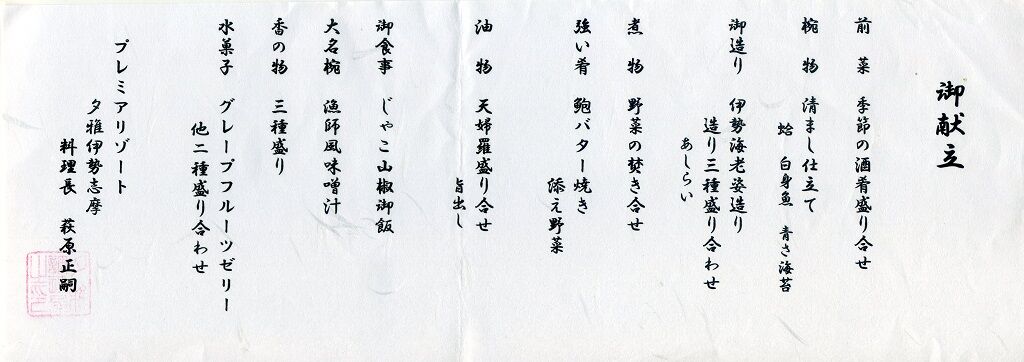 御献立
前菜 季節の酒肴盛り合せ
椀物 清まし仕立て
蛤 白身魚 青さ海苔
御造り 伊勢海老姿造り
造り三種盛り合わせ
あしらい
煮物 野菜の焚き合せ
強い肴 鮑バター焼き
添え野菜
油物 天婦羅盛り合せ
旨出し
御食事 じゃこ山椒御飯
大名椀 漁師風味噌汁
香の物 三種盛り
水菓子 グレープフルーツゼリー
他二種盛り合わせ
プレミアリゾート
夕雅伊勢志摩
料理長 萩原正嗣